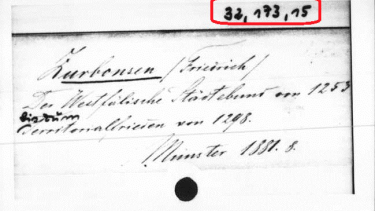 32, 173, 15
Zurbonsen /Friedrich/
Der Westfälische Städtebund von 1253
bis zum
Territorialfrieden von 1298.
Münster 1881. 8.